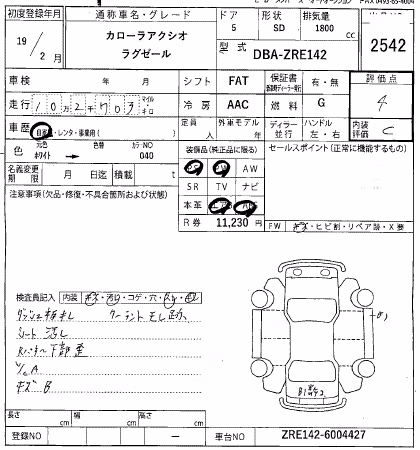 初度登録年月 通称車名・グレード ドア 形状 排気量
19 / 2月 カローラアクシオ 5 SD 1800 cc
ラグゼール 型式 DBA-ZRE142 2542
車検 年 月 シフト FAT 保証書 有・無 評価点
走行 10万2千703 マイル キロ 冷房 AAC 燃料 G 4
車歴 自家・レンタ・事業用( ) 定員 人 外車モデル 年 ディーラー 並行 ハンドル 左・右 内装評価 C
色 元色 ホワイト → 色替 カラーNO 040 装備品(純正品に限る) セールスポイント(正常に機能するもの)
AW
名義変更期限 月 日迄 積載 t SR TV ナビ
注意事項(欠品・修復・不具合箇所および状態) 本革
R券 11,230 円 FW キズ・ヒビ割・リペア跡・X要
検査員記入 内装 キズ・汚れ・コゲ・穴
シート 汚レ
下部歪
キズ B
長さ cm 幅 cm 高さ cm
登録NO — 車台NO ZRE142-6004427